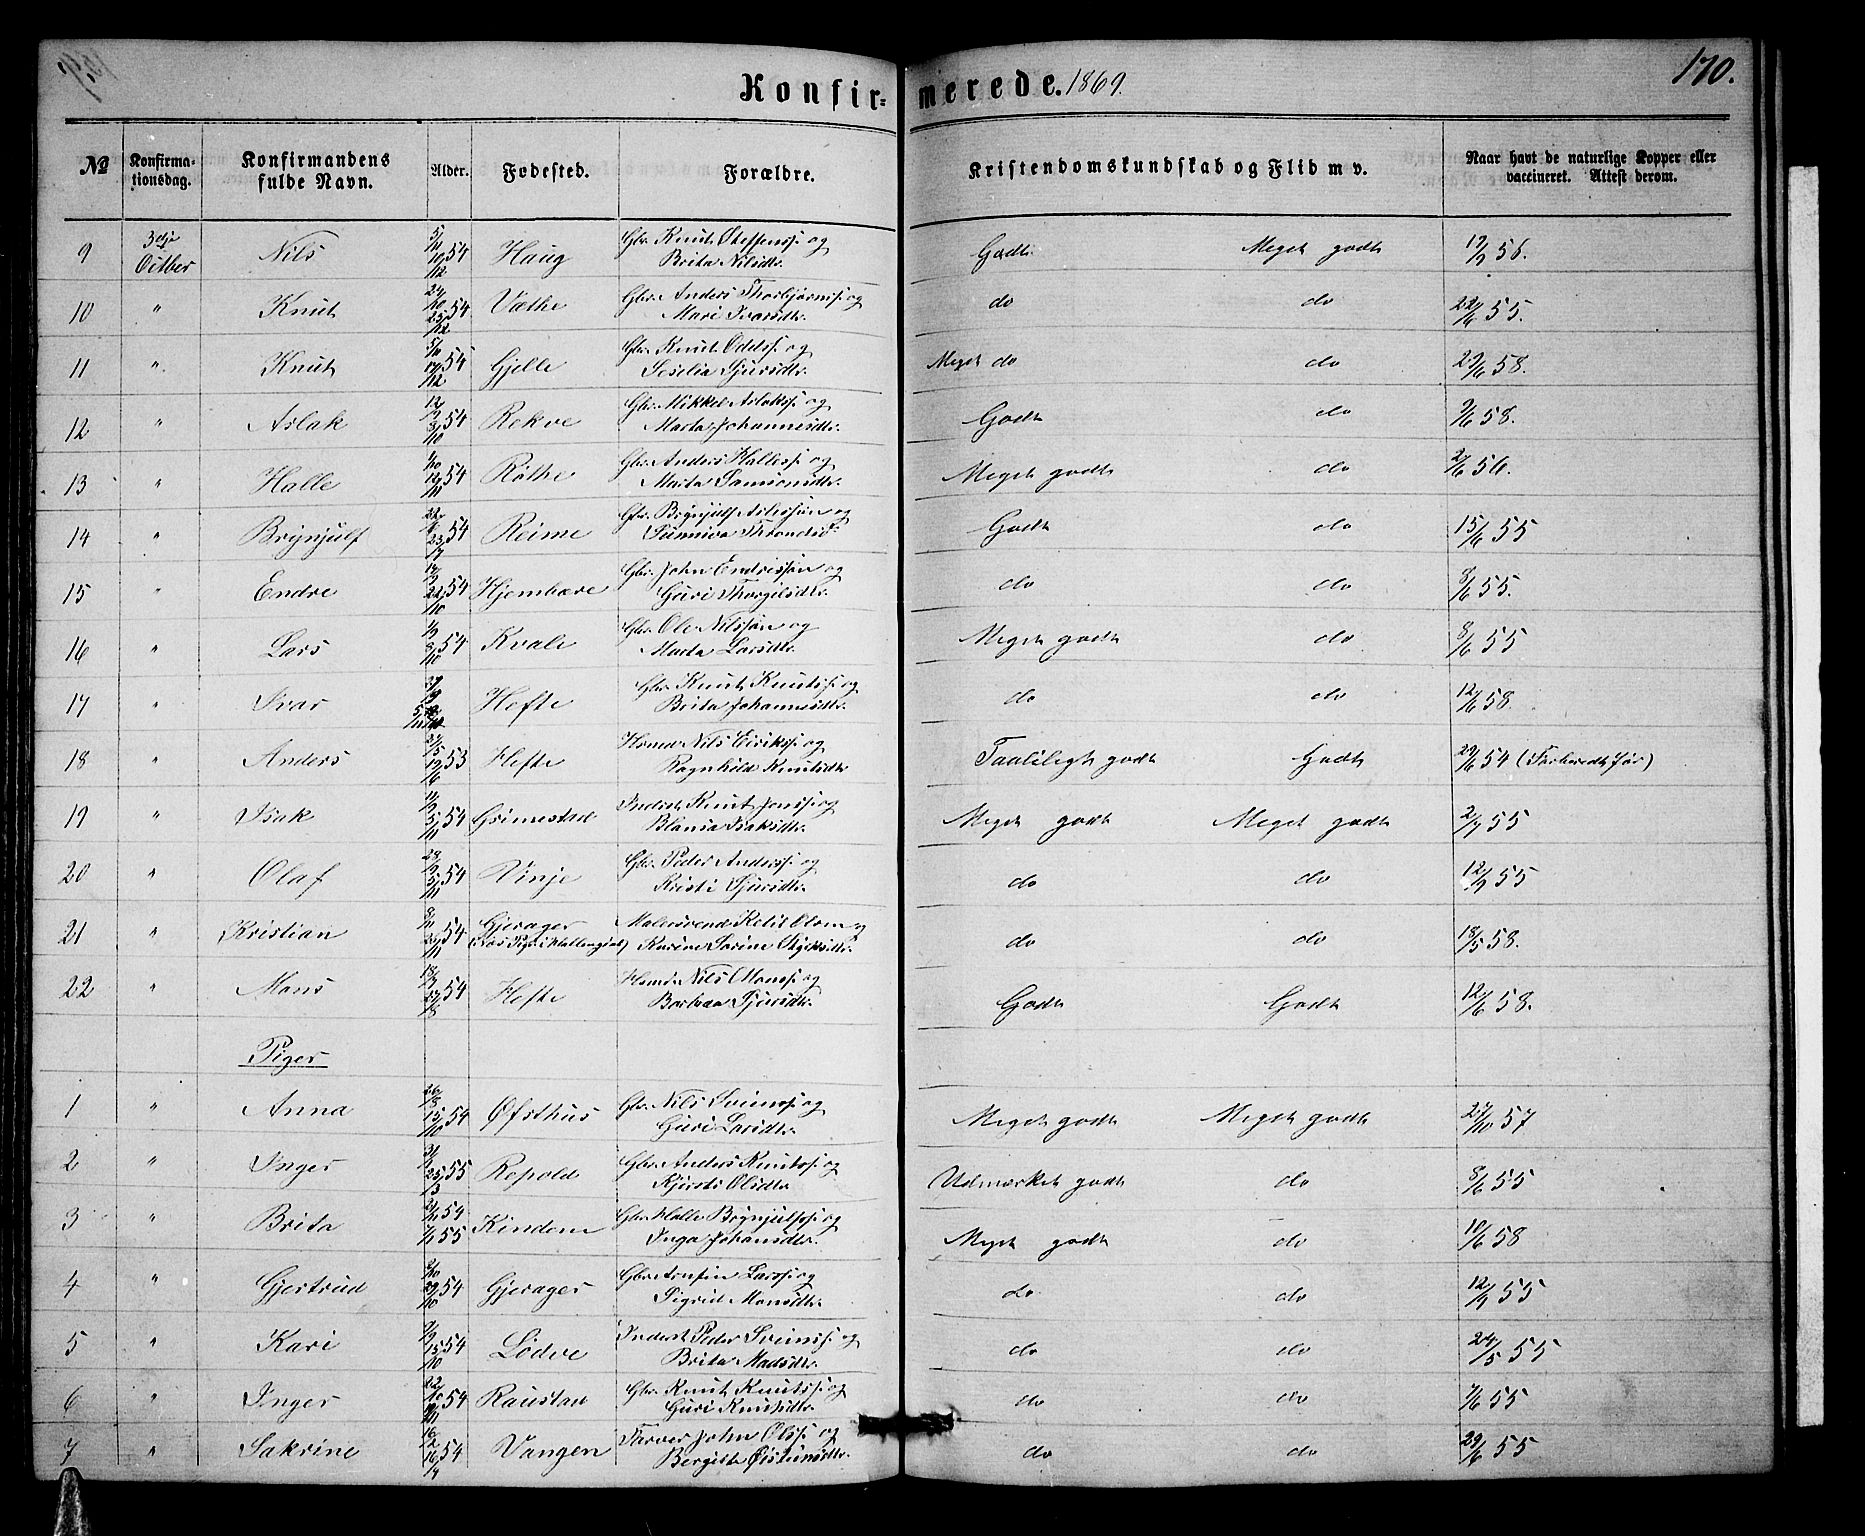 Konfirmerede. 1869. 170.
No Konfirmationsdag. Konfirmandens fulde Navn. Alder. Fødested. Forældre. Kristendomskundskab og Flid m v. Naar havt de naturlige Kopper eller vaccineret. Attest derom.
9 3die Octber Nils 5/11 10/12 54 Haug Gbr. Knut Steffenss. og Brita Nilsdtr. Godt. Meget godt 56.
10 " Knut 54 Væthe Gbr. Anders Thorbjørnss. og Mari Ivarsdtr. do do 55.
11 " Knut 54 Gjelle Gbr. Knut Oddss. og Seselia Sjursdtr. Meget do do 58.
12 " Aslak 54 Rekve Gbr. Mikkel Aslakss. og Marta Johannesdtr. Godt do 9/6 58.
13 " Halle 54 Røthe Gbr. Anders Halless. og Marta Samsonsdtr. Meget godt do 2/6 56.
14 " Brynjulf 54 Reime Gbr. Brynjulf og Sunniva Godt do 15/6 55
15 " Endre 54 Hjembære Gbr. John Endressøn og Guri Thorgilsdtr. do do 8/6 55.
16 " Lars 1/9 8/10 54 Kvale Gbr. Ole Nilssøn og Marta Larsdtr. Meget godt do 8/6 55
17 " Ivar Hefte Gbr. Knut Knutss. og Brita Johannesdtr. do do 12/6 58.
18 " Anders 53 Hefte Hsmd. Nils Eirikss. og Ragnhild Knutsdtr. Taaleligt godt Godt 29/6 54
19 " Isak 54 Grimestad Inderst Knut Jonss. og Blansa Isaksdtr. Meget godt Meget godt 2/7 55
20 " Olaf 54 Vinje Gbr. Peder Anderss. og Kristi Sjursdtr. do do 12/7 55
21 " Kristian 54 Gjerager Malersvend Ketil Olsen og Karine Sorine do do 18/5 58.
22 " Mons 54 Hefte Hsmd. Nils Monss. og Barbra Sjursdtr. Godt Godt 12/6 58.
Piger
1 " Anna 54 Øfsthus Gbr. Nils Sveinss. og Guri Larsdtr. Meget godt Meget godt 57
2 " Inger 55 Repold Gbr. Anders Knutss. og Kjersti Olsdtr. Udmærket godt do 8/6 55
3 " Brita 54 55 Kindem Gbr. Halle Brynjulfss. og Inga Johansdtr. Meget godt do 10/6 58
4 " Gjertrud 54 Gjerager Gbr. Arnfin Larss. og Sigrid Monsdtr. do do 12/7 55
5 " Kari 54 Lødve Inderst Peder Sveinss. og Brita Madsdtr. do do 24/5 55
6 " Inger 54 Raustad Gbr. Knut Knutss. og Guri Knutsdtr. do do 55
7 " Sakrine 16/2 16/4 54 Vangen Farver John Olss. og Bergitta Øisteinsdtr. do do 29/6 55